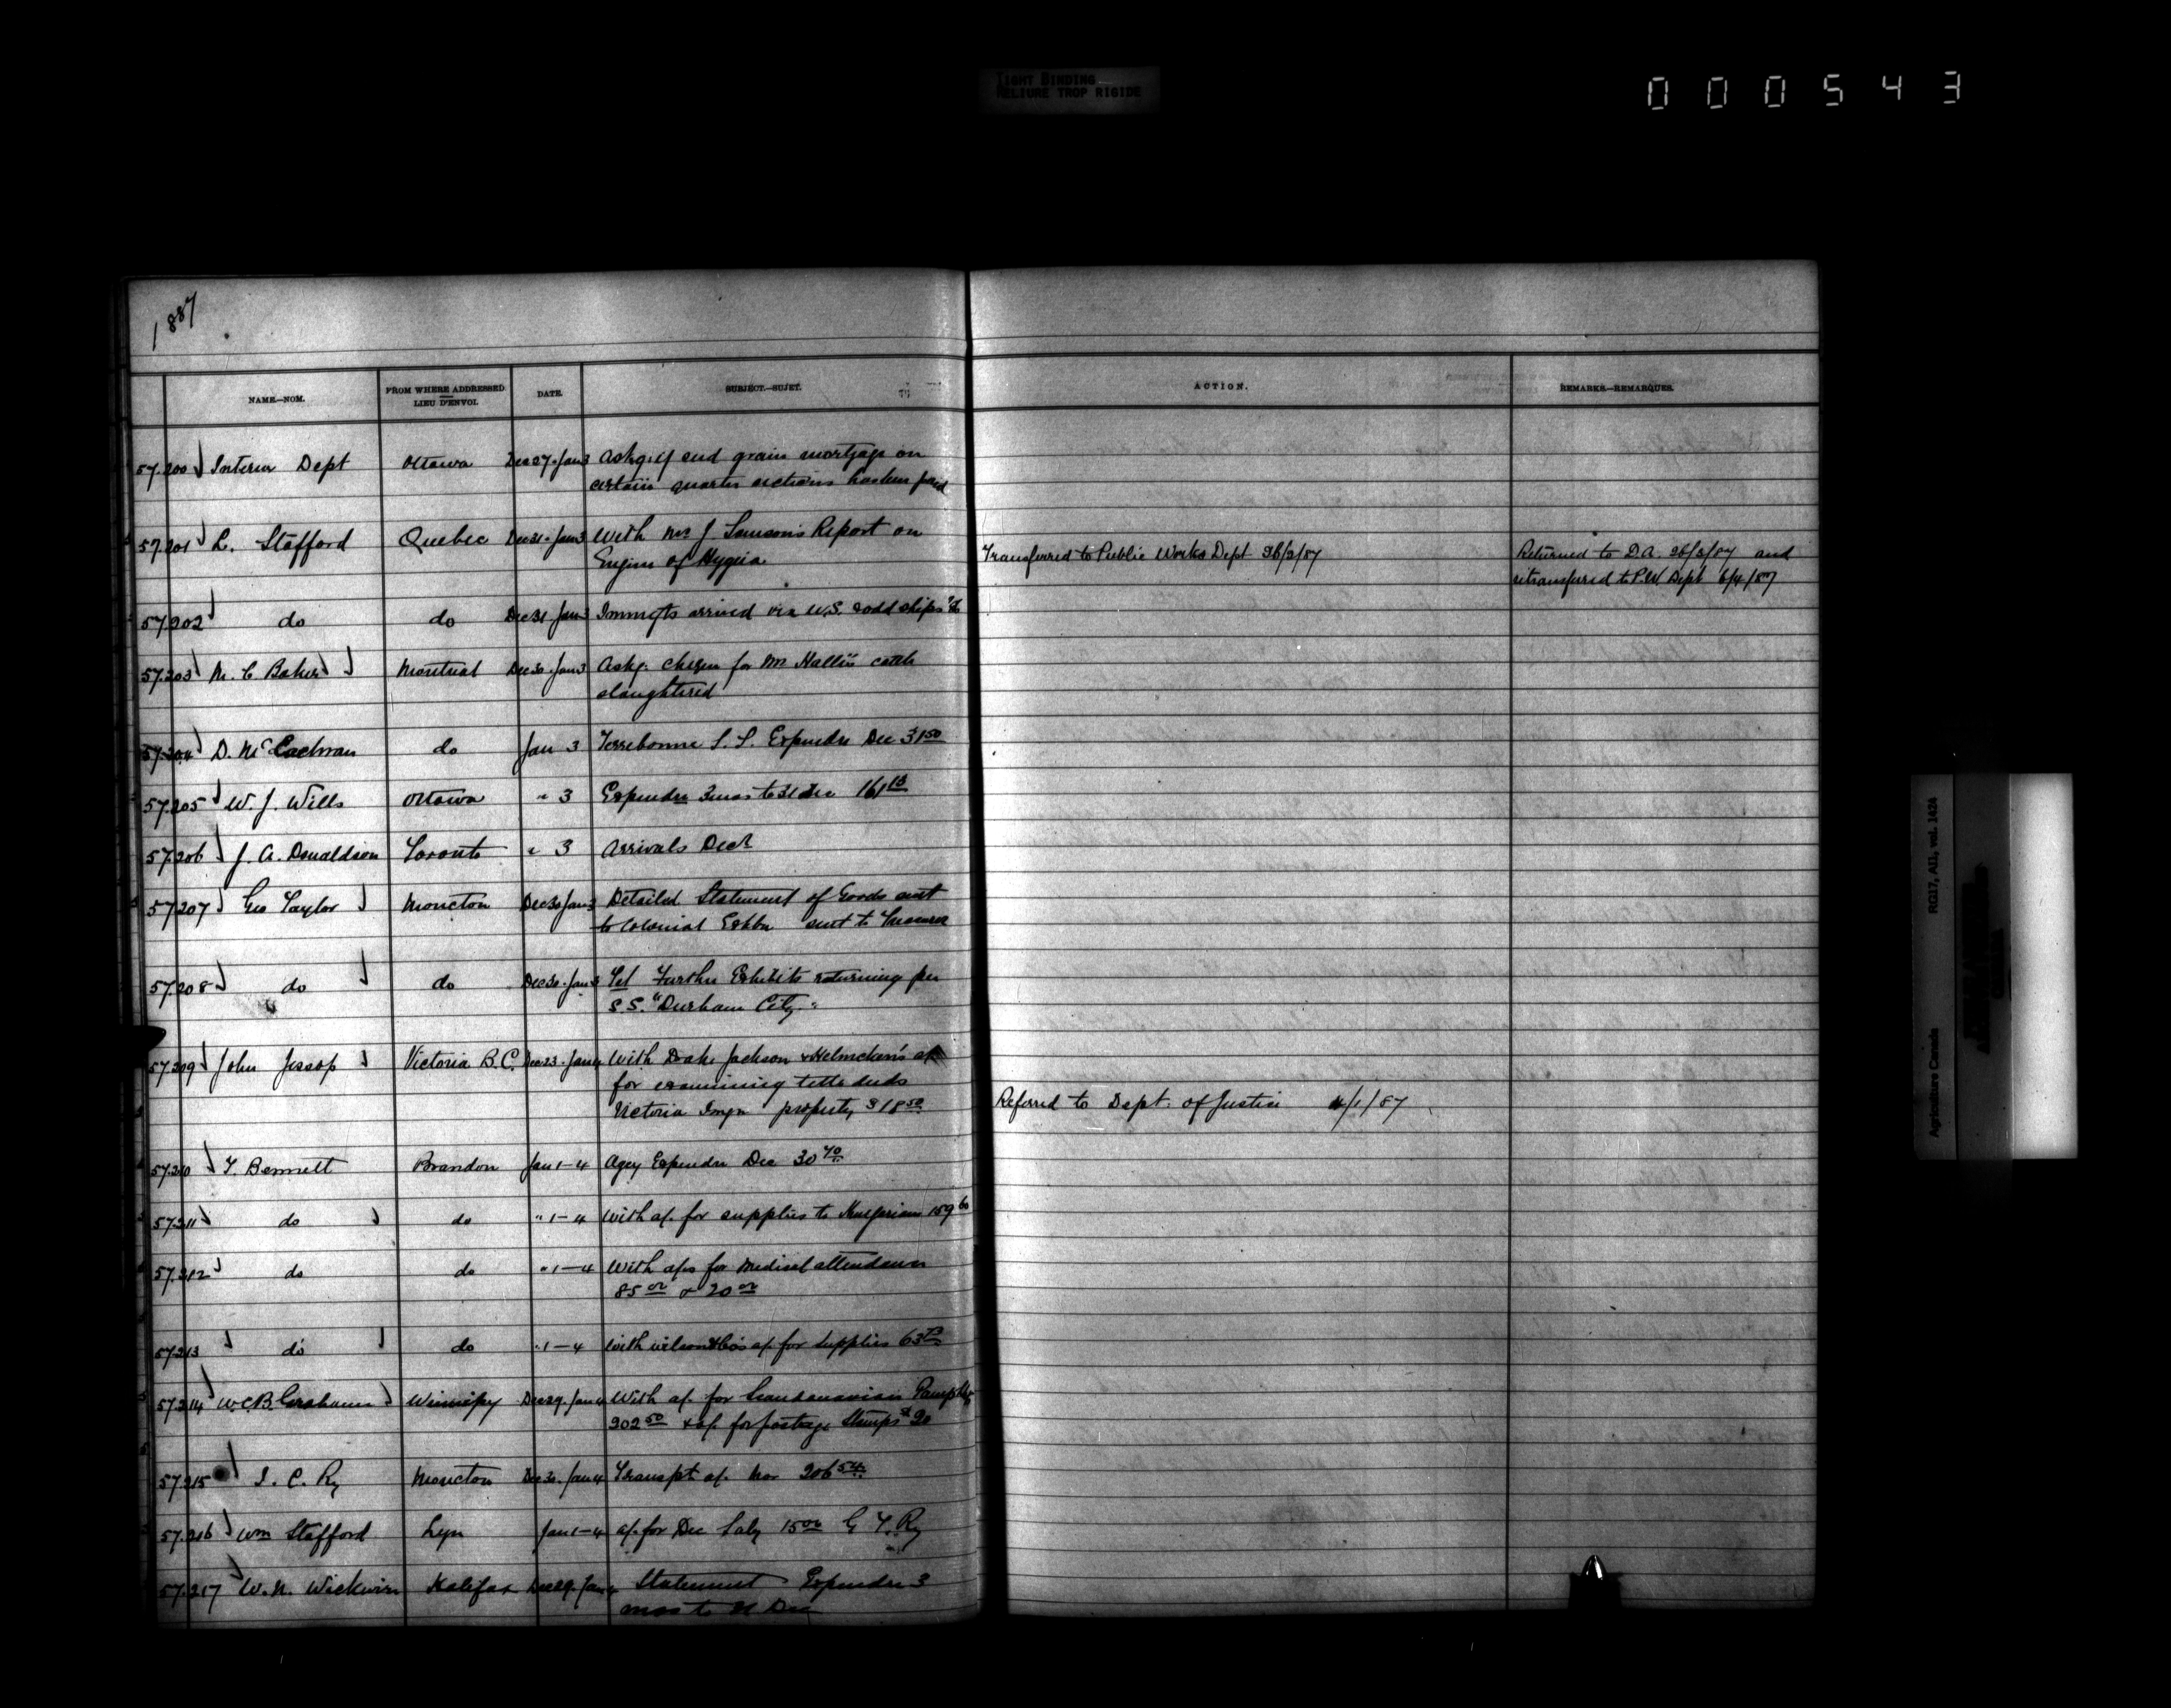 TIGHT BINDING
RELIURE TROP RIGIDE
000543
1887
NAME.—NOM.
FROM WHERE ADDRESSED
LIEU D'ENVOI.
DATE.
SUBJECT.—SUJET.
ACTION.
REMARKS.—REMARQUES.
57.200 Interior Dept Ottawa Dec 27 - Jan 3 Askg. if seed grain mortgage on
certain quarter sections has been paid
57.201 L. Stafford Quebec Dec 31 - Jan 3 With Mr J. Samson's Report on
Engine of Hygeia Transferred to Public Works Dept 26/2/87 Returned to D.A. 26/3/87 and
retransferred to P.W. Dept 6/4/87
57202 do do Dec 31 Jan 3 Immgts arrived via U.S.
57.203 M. C. Baker Montreal Dec 30 - Jan 3 Askg. cheque for Mr cattle
slaughtered
57.204 D. McEachran do Jan 3 Terrebonne S. S. Expendre Dec 31 50
57.205 W. J. Wills Ottawa " 3 Expendre 3 mos to 31 Dec 161 13
57206 J. A. Donaldson Toronto " 3 Arrivals Decr
57207 Geo Taylor Moncton Dec 30 Jan 3 Detailed Statement of Goods sent
to Colonial Exhbn sent to
57.208 do do Dec 30 - Jan 3 Tel Further Exhibits returning per
S.S. "Durham City"
57.209 John Jessop Victoria B.C. Dec 23 - Jan 4 With Drake Jackson & Helmcken's a/c
for examining title deeds
Victoria Immgn property $18 50 Referred to Dept. of Justice 4/1/87
57.210 T. Bennett Brandon Jan 1-4 Agcy Expendre Dec 30 70
57.211 do do " 1-4 With a/c. for supplies to Hungarians 159 60
57.212 do do " 1-4 With a/cs for Medical attendance
85 00 & 20 00
57.213 do do " 1-4 With Wilson & Co's a/c. for Supplies 63
57.214 W.C.B. Grahame Winnipeg Dec 29 - Jan 4 With a/c. for Scandanavian Pamphlets
202 50 & a/c. for postage Stamps 20
57.215 I. C. Ry Moncton Dec 30 - Jan 4 Transpt a/c. Nov 206 54
57.216 Wm Stafford Lyn Jan 1-4 a/c. for Dec Saly 15 00 G. T. Ry
57.217 W. N. Wickwire Halifax Dec 29 - Jan 4 Statement Expendre 3
mos to 31 Dec
Agriculture Canada
RG17, AII, vol. 1424